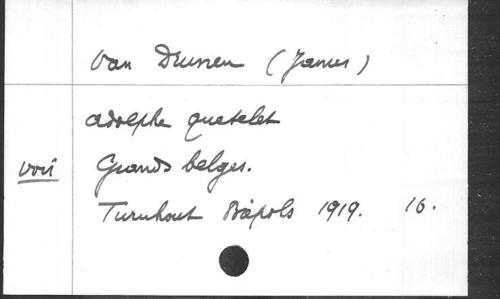 Van Drunen (James)
Adolphe Quetelet
voir Grands belges.
Turnhout Brépols 1919. 16.